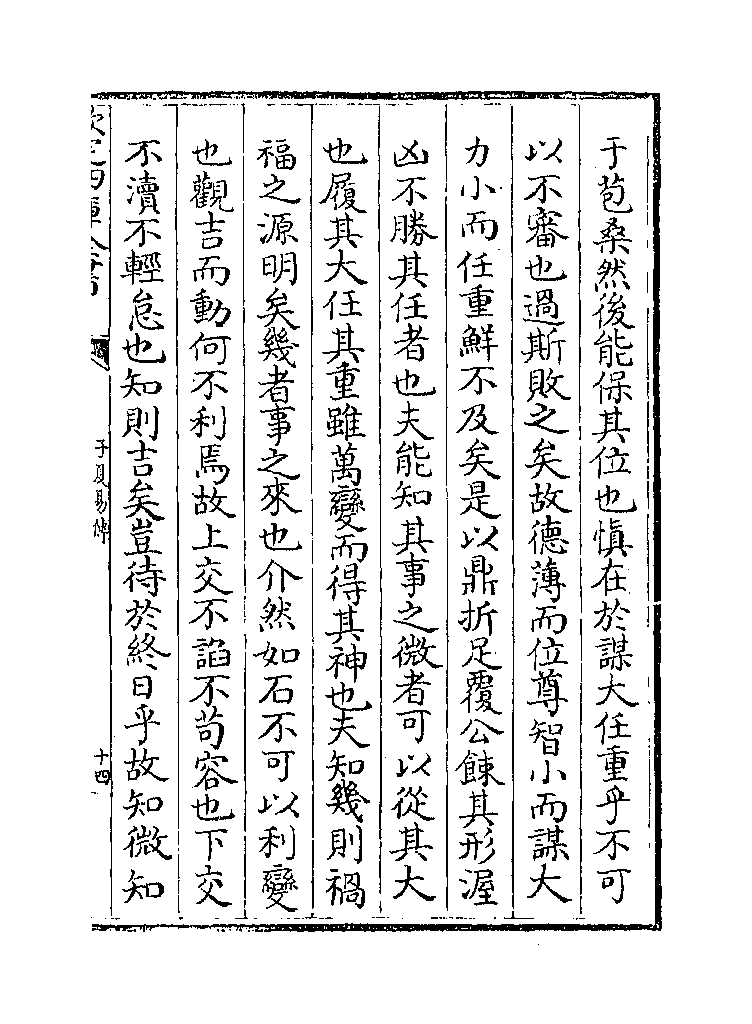 于苞桑然後能保其位也慎在於謀大任重乎不可
以不審也過斯敗之矣故德薄而位尊智小而謀大
力小而任重鮮不及矣是以鼎折足覆公餗其形渥
凶不勝其任者也夫能知其事之微者可以從其大
也履其大任其重雖萬變而得其神也夫知幾則禍
福之源明矣幾者事之來也介然如石不可以利變
也觀吉而動何不利焉故上交不諂不苟容也下交
不瀆不輕怠也知則吉矣豈待於終日乎故知微知
欽定四庫全書
子夏易傳
十四